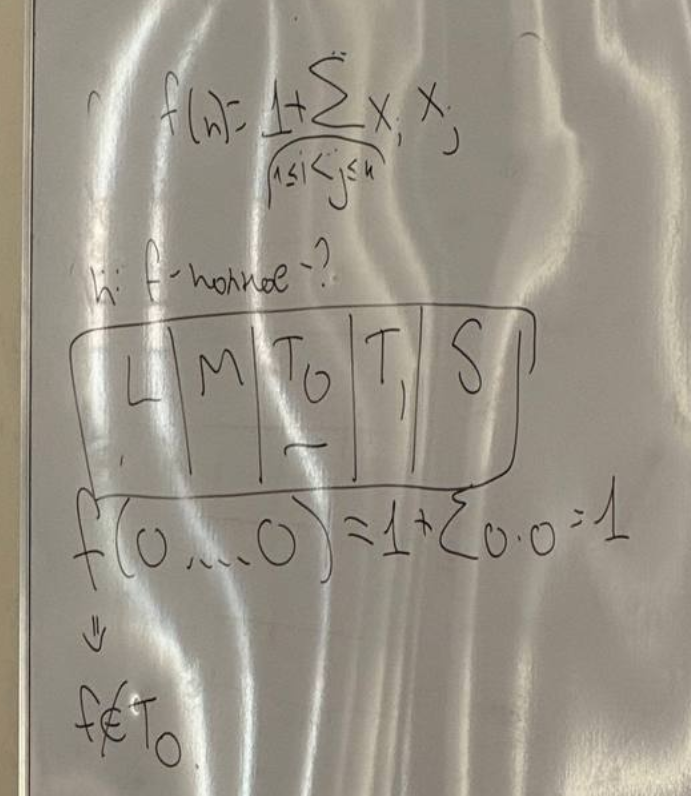 f(n)= 1+∑ xᵢ xⱼ
1≤i<j≤n
n: f-полное-?
L | M | T₀ | T₁ | S
−
f(0....0)=1+∑0.0=1
⇓
f∉T₀.